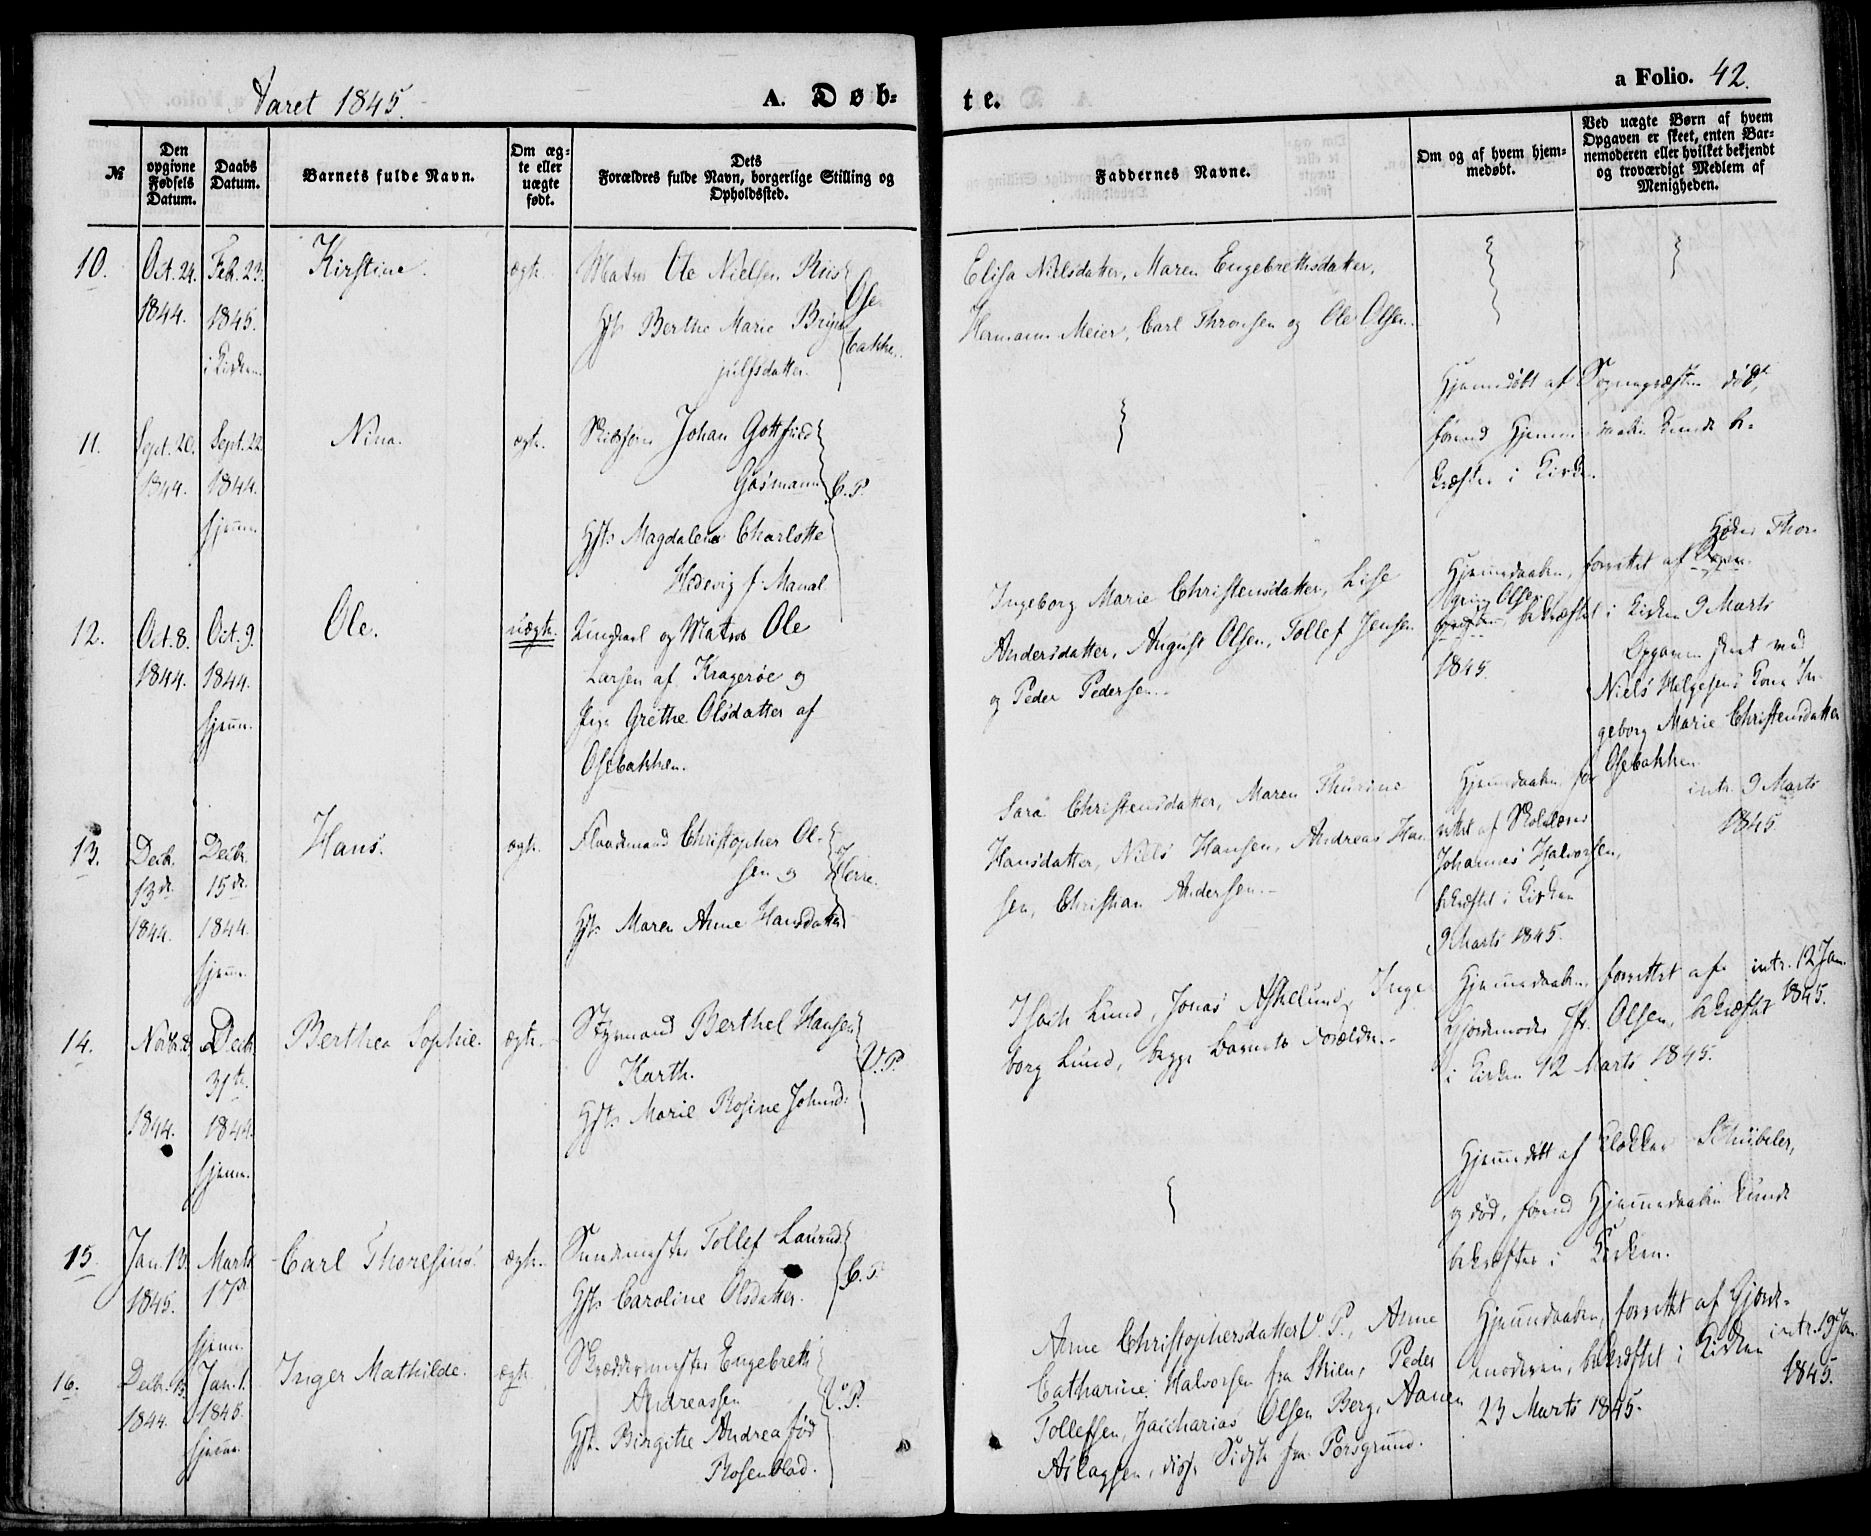 Aaret 1845.
A. Døb-
te.
a Folio. 42.
№
Den opgivne Fødsels Datum.
Daabs Datum.
Barnets fulde Navn.
Om ægte eller uægte født.
Dets
Forældres fulde Navn, borgerlige Stilling og
Opholdssted.
Faddernes Navne.
Om og af hvem hjem-
medøbt.
Ved uægte Børn af hvem
Opgaven er skeet, enten Bar-
nemoderen eller hvilket bekjendt
og troværdigt Medlem af
Menigheden.
10.
Oct. 24.
1844.
Feb. 23.
1845.
i Kirken
Kirstine.
ægte.
Matros Ole Nielsen Riis
Hst. Berthe Marie Bryn
julfsdatter.
Ose
bakke.
Elisa Nielsdatter, Maren Engebrethsdatter,
Hermann Meier, Carl Thronsen og Ole Olsen.
11.
Sept. 20.
1844.
Sept. 22
1844.
hjemme.
Nina.
ægte.
Skibsfører Johan Gottfried
Gasmann
Hst. Magdalena Charlotte
Hedevig f. Manal
V. P.
Hjemmedøbt af Sognepræsten død,
førend Hjemmedaaben kunde be-
kræftes i Kirken.
12.
Oct. 8.
1844.
Oct. 9.
1844.
hjemme.
Ole.
uægte.
Ungkarl og Matros Ole
Larsen af Kragerøe og
Pige Grethe Olsdatter af
Osebakken.
Ingeborg Marie Christensdatter, Lise
Andersdatter, August Olsen, Tollef Jensen
og Peder Pedersen.
Hjemmedaaben, forrettet af
Olsen bekræftet i Kirken 9 Marts
1845.
Opgaven skeet ved
Niels Helgesens Kone In-
geborg Marie Christensdatter
Osebakken
intr. 9 Marts
1845.
13.
Decbr.
13de
1844.
Decbr.
15de
1844.
hjemme.
Hans.
ægte.
Flaademand Christopher Ol-
sen og
Hst. Maren Anne Hansdatter
Herre.
Sara Christensdatter, Maren Thurine
Hansdatter, Niels Hansen, Andreas Han
sen, Christian Andersen.
Hjemmedaaben for
rettet af Skolelærer
Johannes Halvorsen,
bekræftet i Kirken
9 Marts 1845.
14.
Novbr. 8
1844.
Decbr.
31te
1844.
hjemme.
Berthea Sophie.
ægte.
Styrmand Berthel Hansen
Karth.
Hst. Marie Rosine Johnsd:
V. P.
Isach Lund, Jonas Askelund, Inge
borg Lund, begge Barnets Forældre.
Hjemmedaaben, forrettet af
Gjordemoder Olsen, bekræftet
i Kirken 12 Marts 1845.
intr. 12 Jan.
1845.
15.
Jan. 13.
1845.
Marts
17de
hjemme
Carl Thoresius.
ægte.
Tollef Laurud
Hst. Caroline Olsdatter.
V. P.
Hjemmedøbt af Klokker Schübeler,
og død, førend Hjemmedaaben kunde
bekræftes i Kirken.
16.
Decbr. 13.
1844.
Jan. 1.
1845.
hjemme.
Inger Mathilde.
ægte.
Skræddermester Engebreth
Andreassen
Hst. Birgithe Andrea fød
Rosenblad.
V. P.
Anne Christophersdatter V. P., Anne
Catharine Halvorsen fra Skien, Peder
Tollefsen, Zacharias Olsen Berg, Aanen
Aslagsen, disse Sidste fra Porsgrund.
Hjemmedaaben, forrettet af Gjorde-
moderen, bekræftet i Kirken
23 Marts 1845.
intr. 19 Jan.
1845.